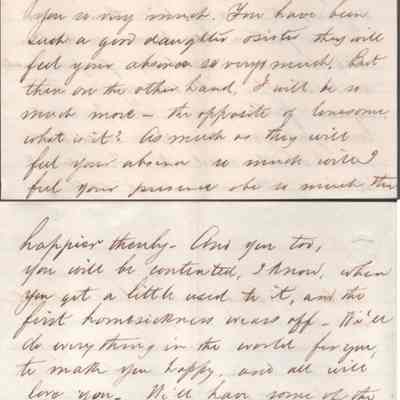 you so very much. You have been
such a good daughter & sister they will
feel your absence so very much, But
then on the other hand, I will be so
much more - the opposite of lonesome
what is it? As much as they will
feel your absence so much will I
feel your presence & be so much the
happier thereby - And you too,
you will be contented, I know, when
you get a little used to it, and the
first homesickness wears off - We'll
do everything in the world for you,
to make you happy, and all will
love you - We'll have some of the